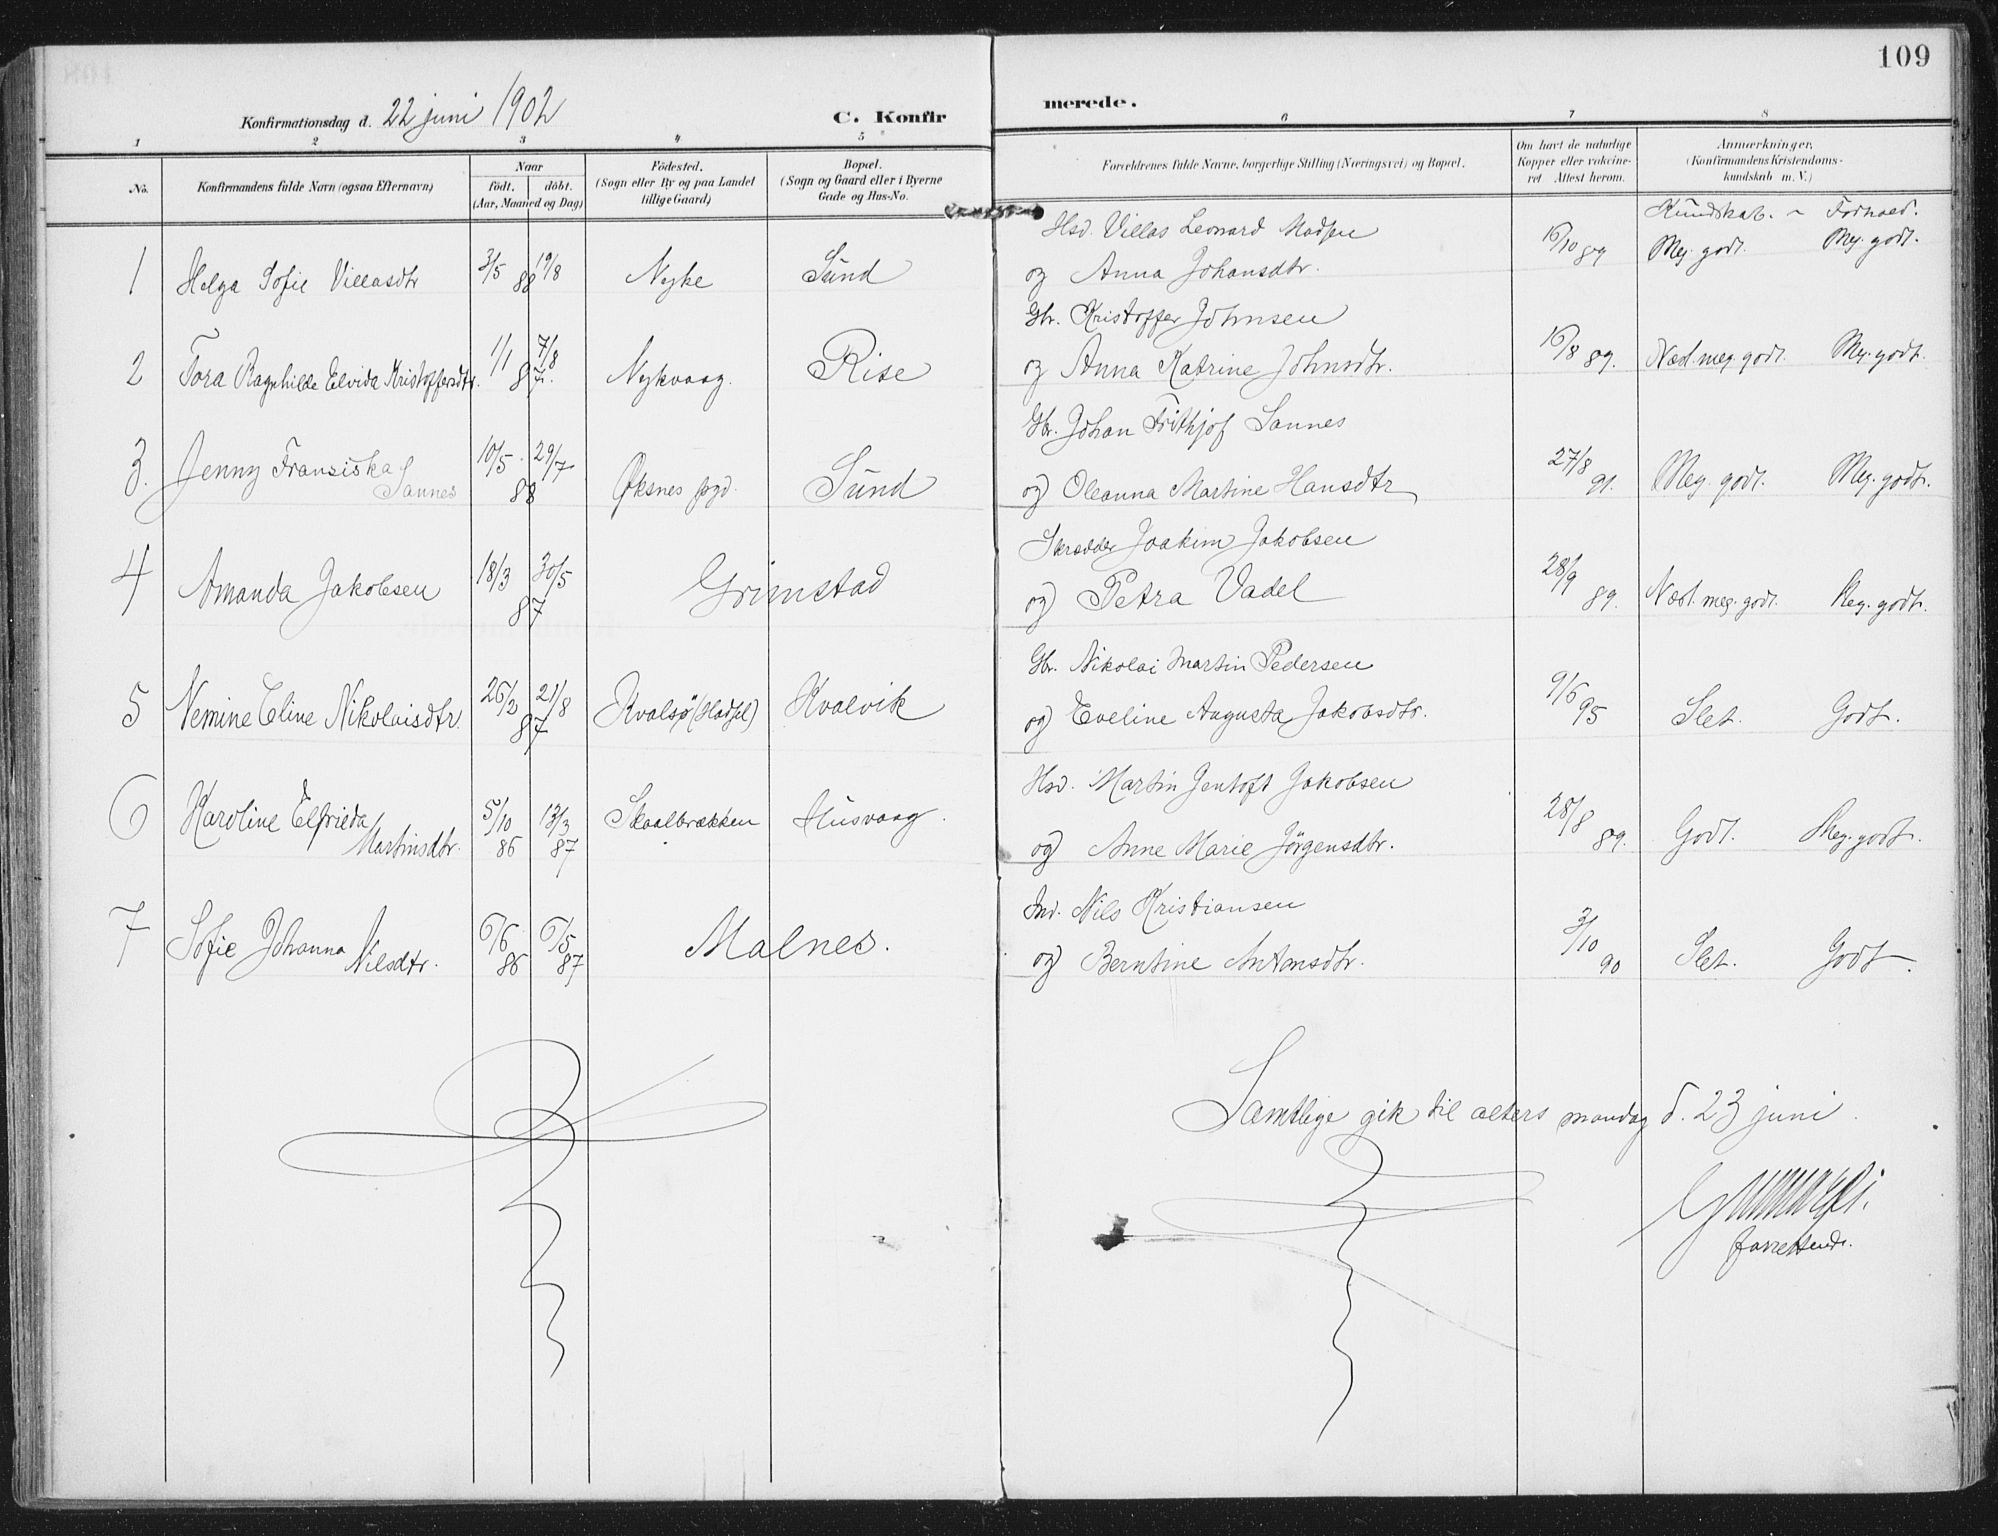 109
Konfirmationsdag d. 22 juni 1902
C. Konfirmerede.
1 2 3 4 5 6 7 8
No.
Konfirmandens fulde Navn (ogsaa Efternavn)
Naar
födt. döbt.
(Aar, Maaned og Dag)
Födested.
(Sogn eller By og paa Landet
tillige Gaard)
Bopæl.
(Sogn og Gaard eller i Byerne
Gade og Hus-No.
Forældrenes fulde Navne, borgerlige Stilling (Næringsvei) og Bopæl.
Om havt de naturlige
Kopper eller vakcine-
ret Attest herom.
Anmærkninger,
(Konfirmandens Kristendoms-
kundskab m. V.)
Kundskab. - Forhold.
Hsd. Villas Leonard Madsen
1 Helga Sofie Villasdtr 3/5 88 19/8 Nyke Sund og Anna Johansdtr. 16/10 89 Meg. godt. Meg. godt.
Gbr. Kristoffer Johnsen
2 Tora Ragnhilde Elvida Kristoffersdtr. 1/1 87. 7/8 Nykvaag. Rise og Anna Katrine Johnsdtr. 16/8 89. Næst. meg. godt. Meg. godt.
Gbr. Johan Frithjof Sannes
3. Jenny Fransiska Sannes 10/5 88 29/7 Øksnes pgd. Sund og Oleanna Martine Hansdtr 27/8 91. Meg. godt. Meg. godt.
Skrædder Joakim Jakobsen
4 Amanda Jakobsen 18/3 87 30/5 Grimstad og Petra Vadel 28/9 89. Næst. meg. godt. Meg. godt.
Gbr. Nikolai Martin Pedersen
5 Nemine Eline Nikolaisdtr. 26/2 87 21/8 Kvalsö (Hadsel) Kvalvik og Eveline Augusta Jakobsdtr. 9/6 95 Slet. Godt.
Hsd. Martin Jentoft Jakobsen
6 Karoline Elfrieda Martinsdtr. 5/10 86 13/3 87 Skaalbrækken Husvaag. og Anne Marie Jörgensdtr. 28/8 89. Godt. Meg. godt.
Ind. Nils Kristiansen
7 Sofie Johanna Nilsdtr. 6/6 86 6/5 87 Malnes. og Berntine Antonsdtr. 3/10 90 Slet. Godt.
Samtlige gik til alters mandag d. 23 juni.
forrettende.